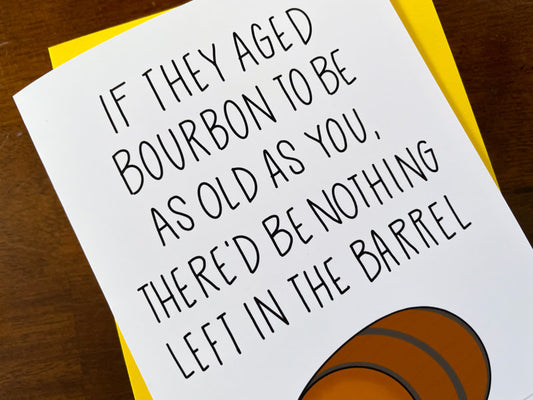 IF THEY AGED
BOURBON TO BE
AS OLD AS YOU,
THERE'D BE NOTHING
LEFT IN THE BARREL